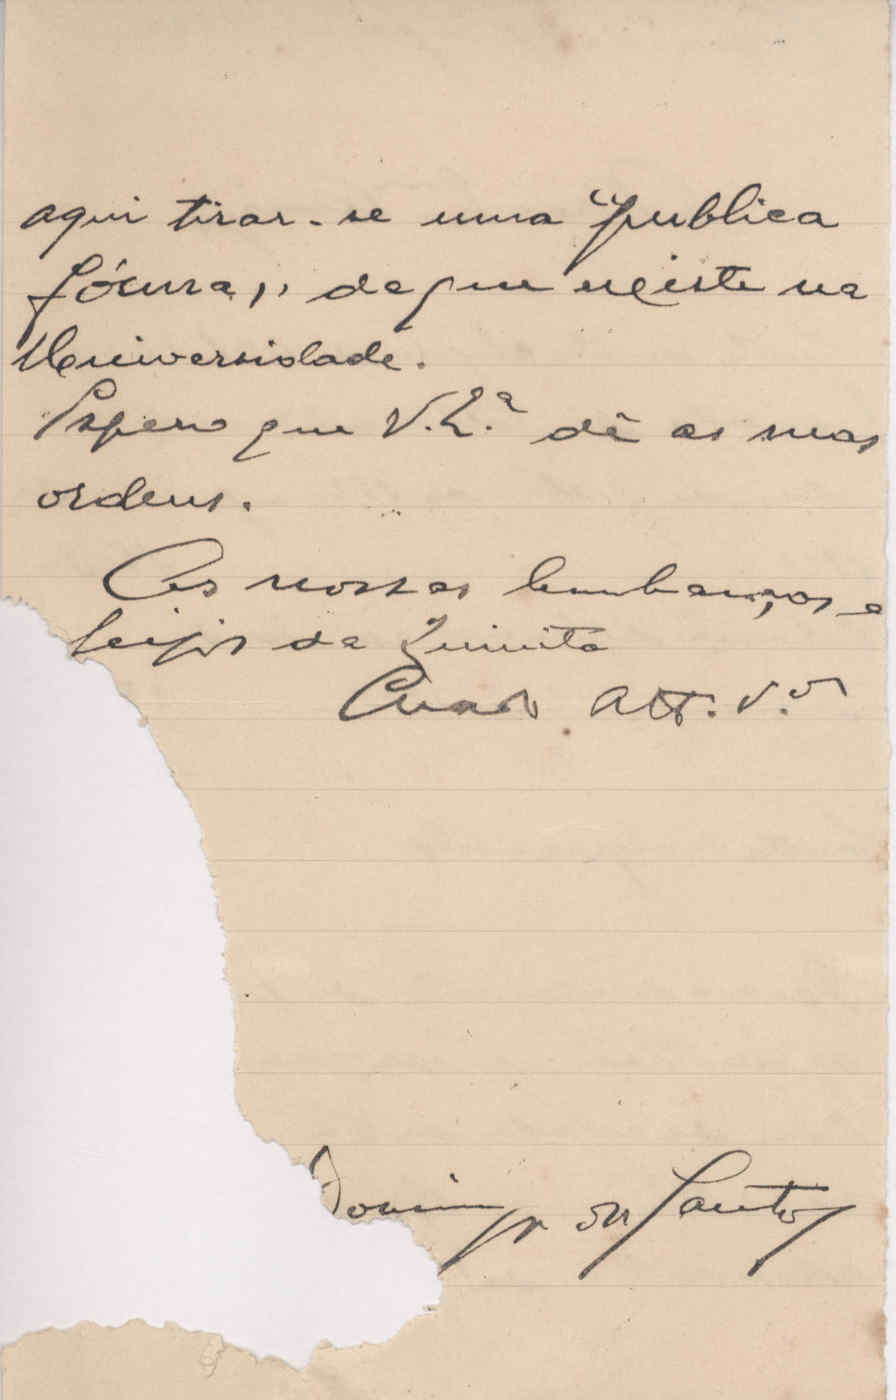 aqui tirar-se uma "publica
fórma,, do que existe na
Universidade.
Espero que V. Ex.ª dê as suas
ordens.
As nossas lembranças e
beijos da
Criado Att. V.ᵒʳ
Domingos dos Santos